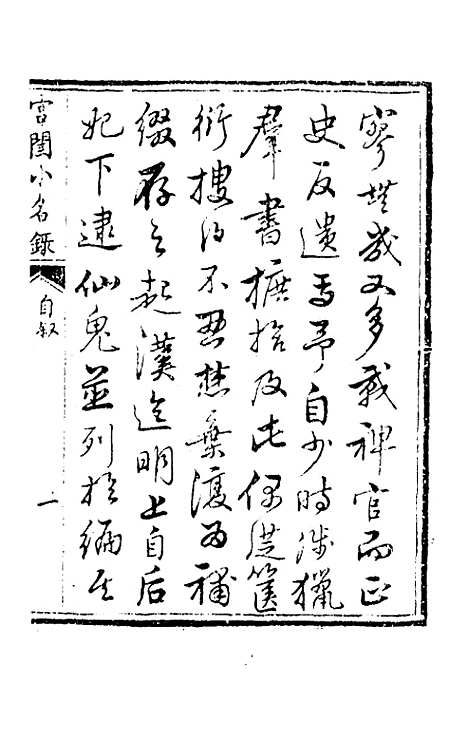 寥其幾又多載稗官而正
史反遺焉予自少時涉獵
羣書摭拾及此偶從篋
衍搜得不忍焚棄復為補
綴存之起漢迄明上自后
妃下逮仙鬼並列於編其
宮閨小名錄
自敘
一